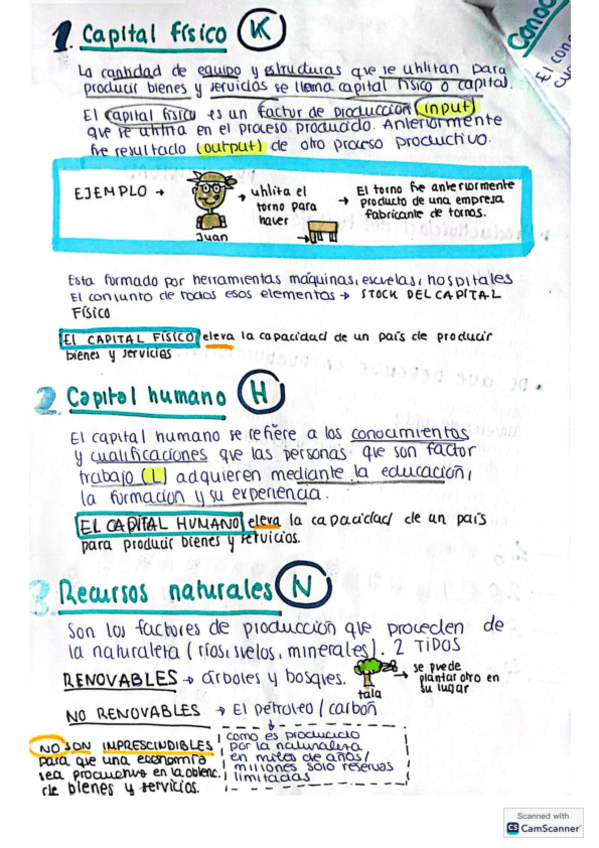 1. Capital físico (K)
Conoc
El cono
La cantidad de equipo y estructuras que se utilitan para
producir bienes y servicios se llama capital físico o capital.
El capital físico es un factor de producción (input)
que se utilita en el proceso producido. Anteriormente
fue resultado (output) de otro proceso productivo.
EJEMPLO → → utilita el → El torno fue anteriormente
torno para producto de una empresa
haver → fabricante de tornos.
Juan
Esta formado por herramientas máquinas, escuelas, hospitales
El conjunto de todos esos elementos → STOCK DEL CAPITAL
FÍSICO
El CAPITAL FÍSICO eleva la capacidad de un país de producir
bienes y servicios
2. Capital humano (H)
El capital humano se refiere a los conocimientos
y cualificaciones que las personas que son factor
trabajo (L) adquieren mediante la educación,
la formación y su experiencia.
EL CAPITAL HUMANO eleva la capacidad de un país
para producir bienes y servicios.
3. Recursos naturales (N)
Son los factores de producción que proceden de
la naturaleta (ríos, suelos, minerales). 2 TIDOS
RENOVABLES → árboles y bosques. → se puede
plantar otro en
tala su lugar
NO RENOVABLES → El petróleo / carbón
NO SON IMPRESCINDIBLES
para que una economía
sea productiva en la obtenc.
de bienes y servicios.
como es producido
por la naturaleta
en miles de años/
millones solo reservas
limitadas
Scanned with
CS CamScanner